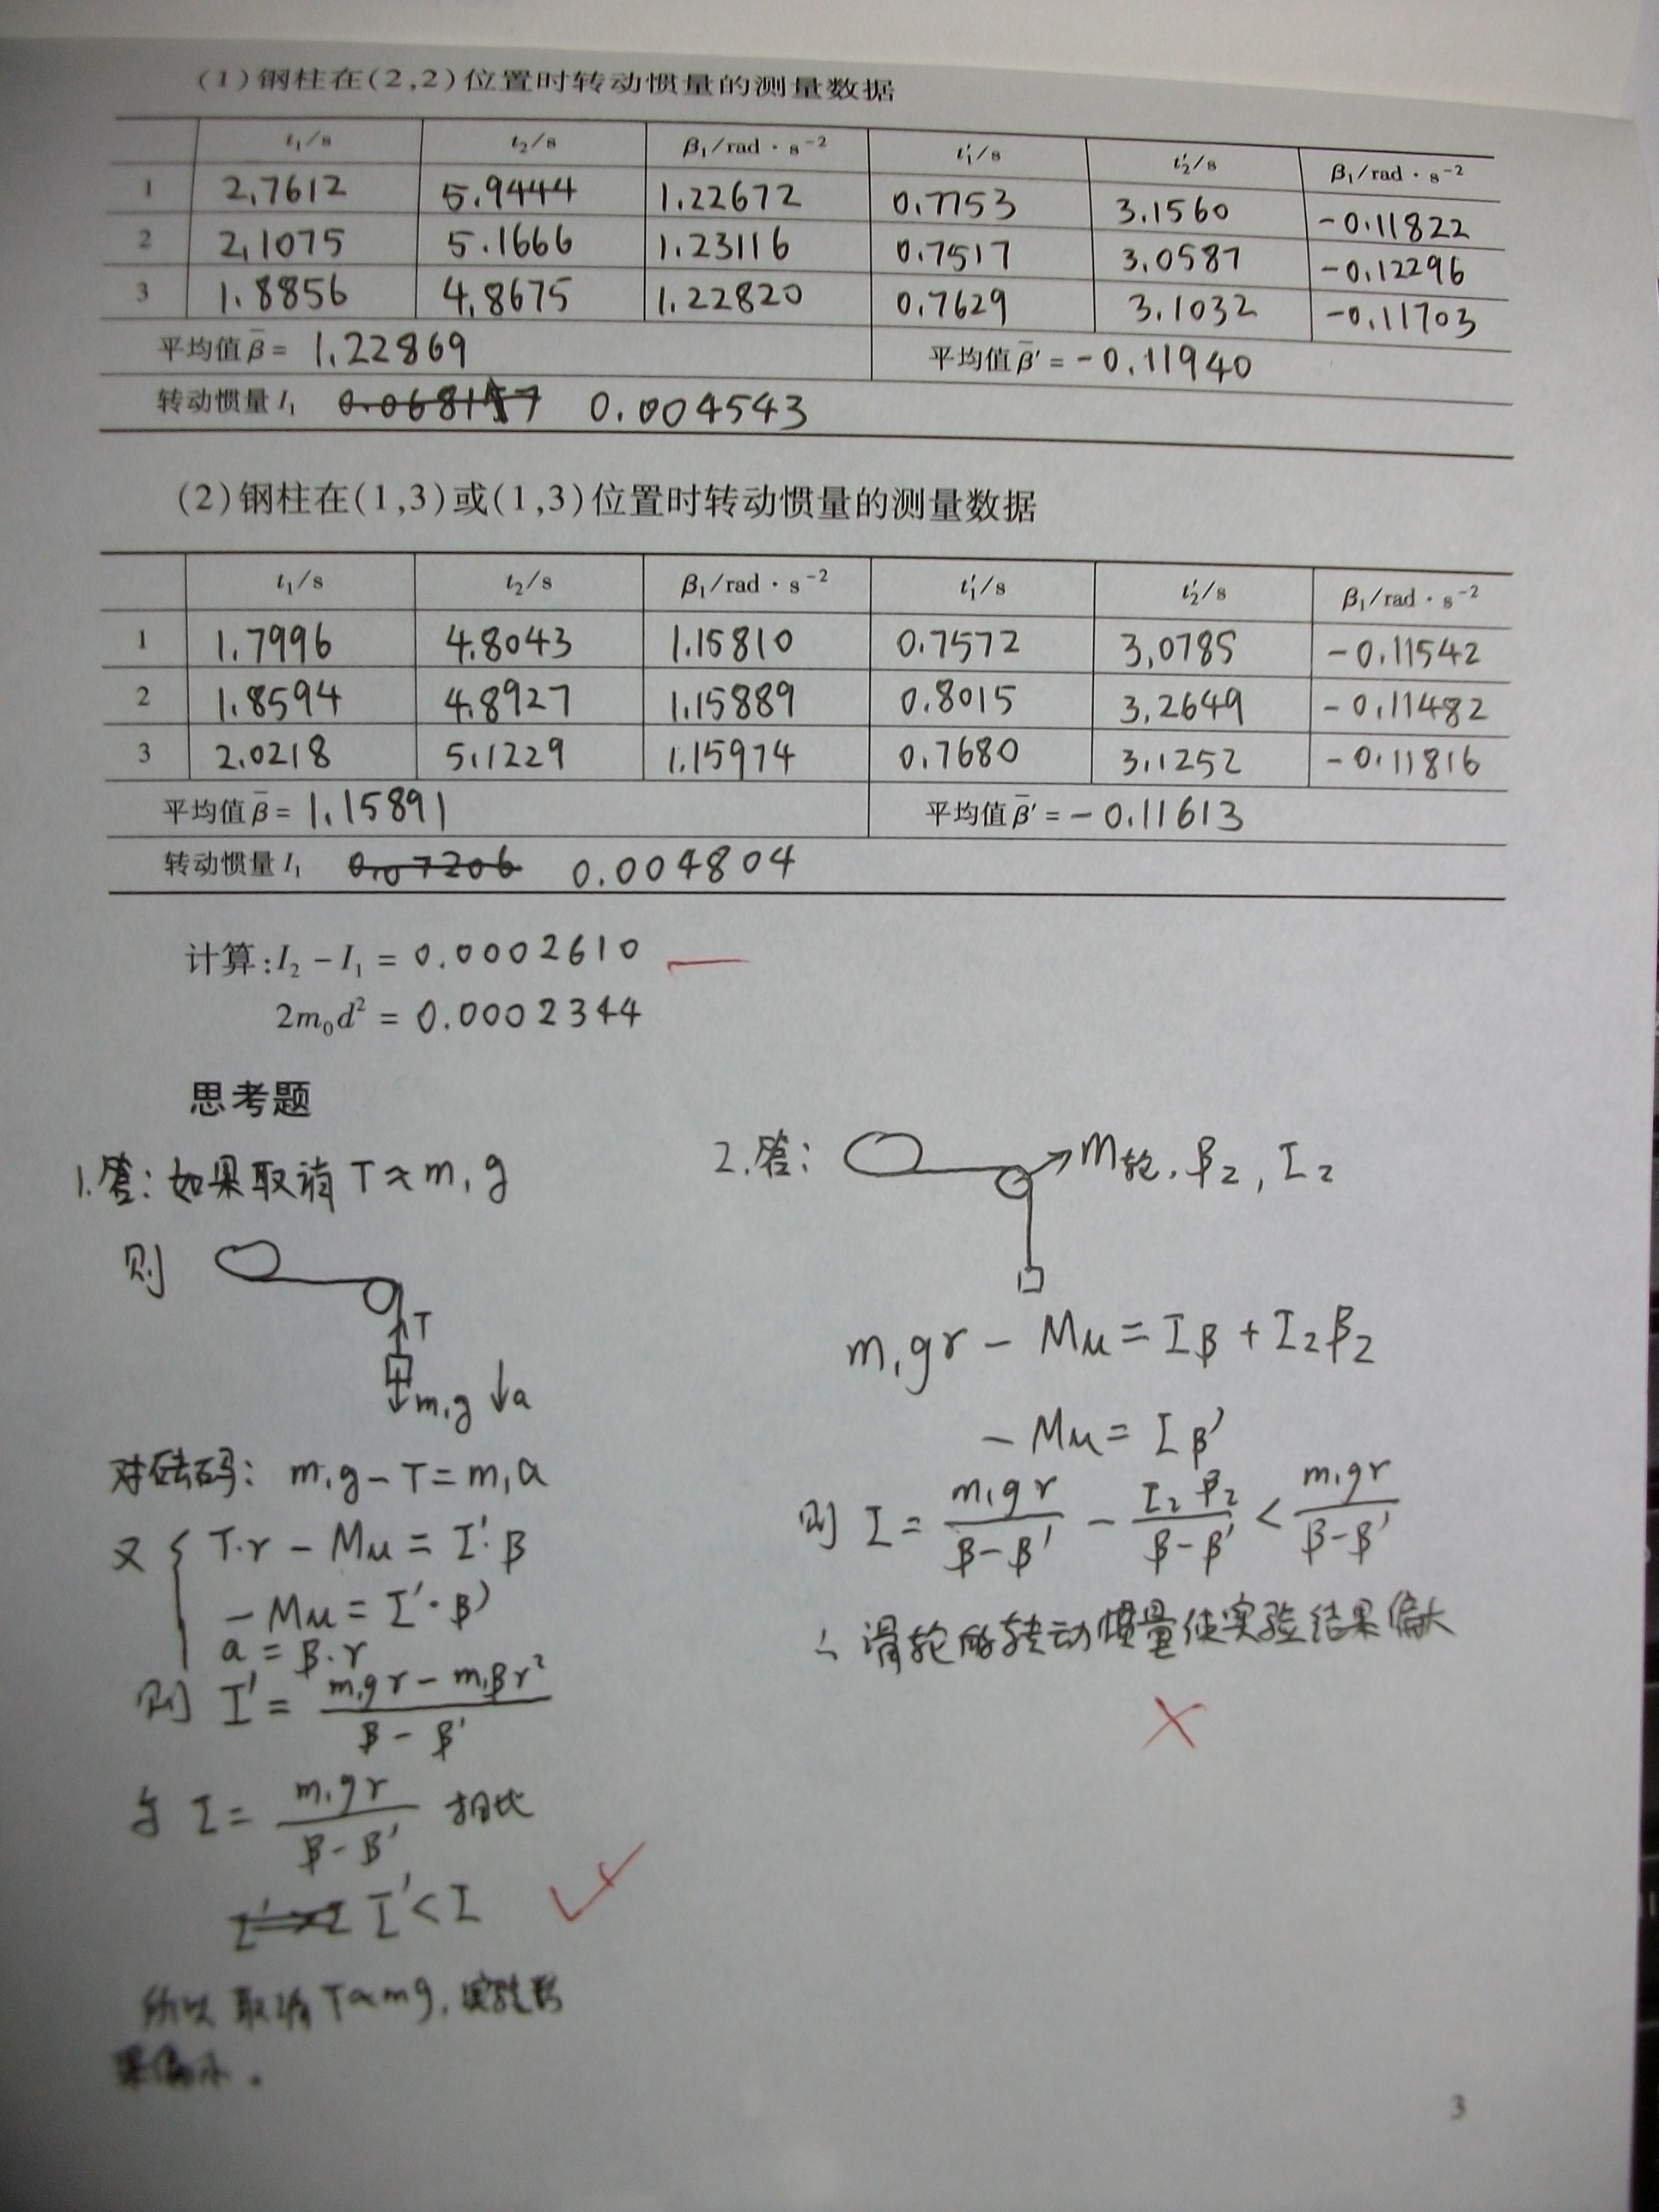 (1)钢柱在(2,2)位置时转动惯量的测量数据
t₁/s t₂/s β₁/rad·s⁻² t₁′/s t₂′/s β₁/rad·s⁻²
1 2.7612 5.9444 1.22672 0.7753 3.1560 -0.11822
2 2.1075 5.1666 1.23116 0.7517 3.0587 -0.12296
3 1.8856 4.8675 1.22820 0.7629 3.1032 -0.11703
平均值β̄= 1.22869 平均值β̄′=-0.11940
转动惯量I₁ 0.004543
(2)钢柱在(1,3)或(1,3)位置时转动惯量的测量数据
t₁/s t₂/s β₁/rad·s⁻² t₁′/s t₂′/s β₁/rad·s⁻²
1 1.7996 4.8043 1.15810 0.7572 3.0785 -0.11542
2 1.8594 4.8927 1.15889 0.8015 3.2649 -0.11482
3 2.0218 5.1229 1.15974 0.7680 3.1252 -0.11816
平均值β̄= 1.15891 平均值β̄′=-0.11613
转动惯量I₁ 0.07206 0.004804
计算:I₂-I₁=0.0002610
2m₀d²=0.0002344
思考题
1.答:如果取消T≈m₁g
则
T
m₁g ↓a
对砝码: m₁g-T=m₁a
又{ T·r-Mμ=I′·β
-Mμ=I′·β′
a=β·r
则 I′=(m₁gr-m₁βr²)/(β-β′)
与 I=m₁gr/(β-β′) 相比
I′<I
所以取消T≈mg,实验结
果偏小。
2.答:
m轮,β₂,I₂
m₁gr-Mμ=Iβ+I₂β₂
-Mμ=Iβ′
则 I=m₁gr/(β-β′)-I₂β₂/(β-β′)<m₁gr/(β-β′)
∴滑轮的转动惯量使实验结果偏大
3